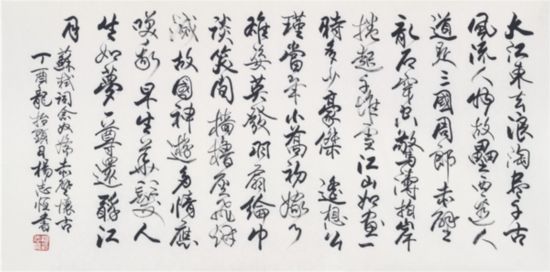 大江東去浪淘盡千古
風流人物故壘西邊人
道是三國周郎赤壁
亂石穿空驚濤拍岸
捲起千堆雪江山如畫一
時多少豪傑 遙想公
瑾當年小喬初嫁了
雄姿英發羽扇綸巾
談笑間檣櫓灰飛煙
滅故國神遊多情應
咲我早生華髮人
生如夢一尊還酹江
月 蘇軾詞念奴嬌赤壁懷古
丁酉龍抬頭日楊志恒書